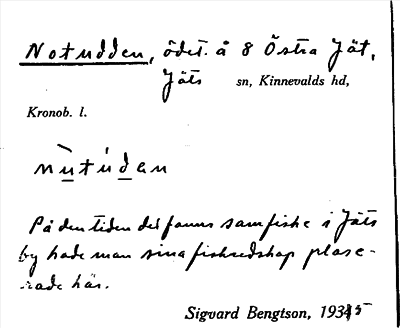 Notudden, ödet. å 8 Östra Jät,
Jäts sn, Kinnevalds hd,
Kronob. l.
nùtúdan
På den tiden det fanns samfiske i Jäts
by hade man sina fiskredskap place-
rade här.
Sigvard Bengtson, 1935